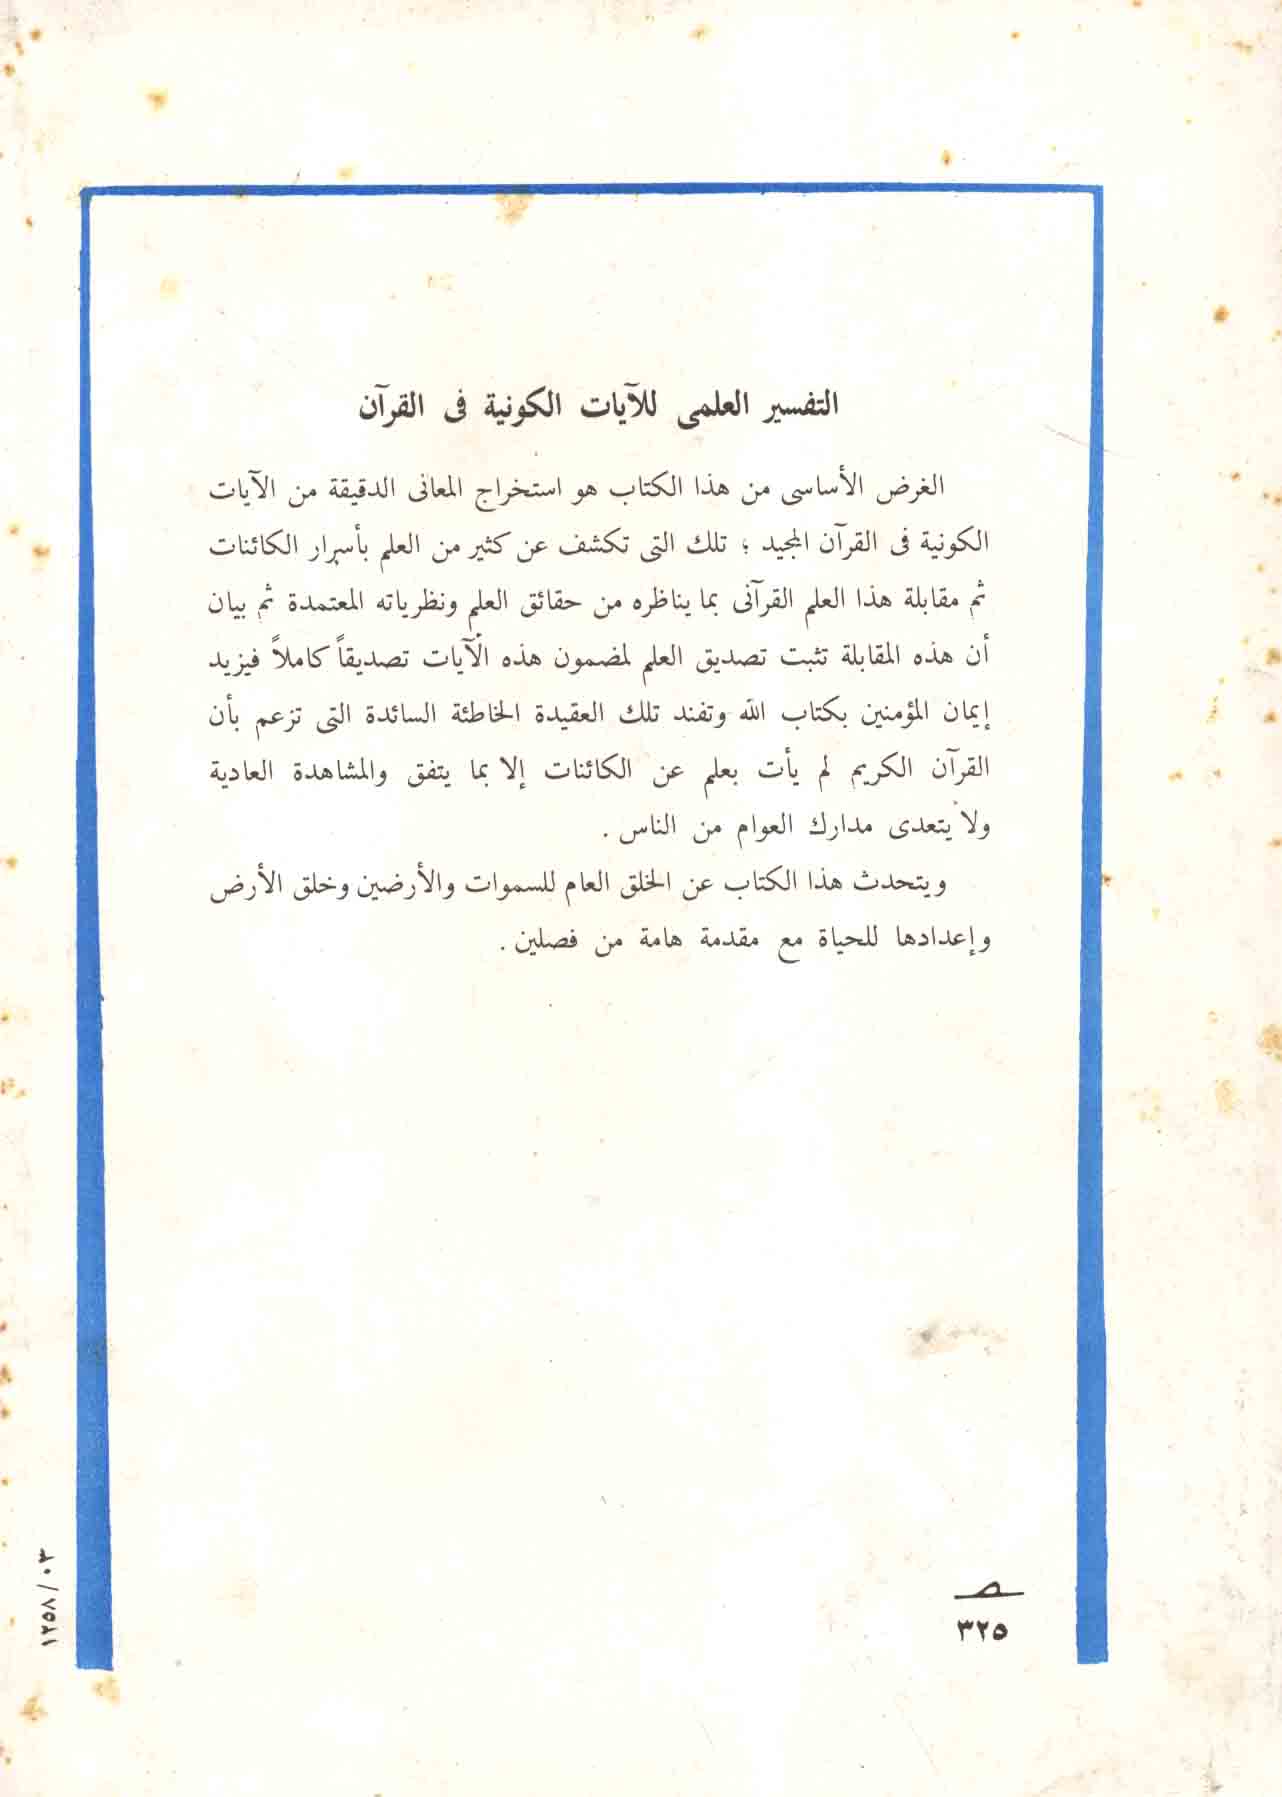 التفسير العلمى للآيات الكونية فى القرآن
الغرض الأساسى من هذا الكتاب هو استخراج المعانى الدقيقة من الآيات
الكونية فى القرآن المجيد ؛ تلك التى تكشف عن كثير من العلم بأسرار الكائنات
ثم مقابلة هذا العلم القرآنى بما يناظره من حقائق العلم ونظرياته المعتمدة ثم بيان
أن هذه المقابلة تثبت تصديق العلم لمضمون هذه الآيات تصديقاً كاملاً فيزيد
إيمان المؤمنين بكتاب الله وتفند تلك العقيدة الخاطئة السائدة التى تزعم بأن
القرآن الكريم لم يأت بعلم عن الكائنات إلا بما يتفق والمشاهدة العادية
ولا يتعدى مدارك العوام من الناس .
ويتحدث هذا الكتاب عن الخلق العام للسموات والأرضين وخلق الأرض
وإعدادها للحياة مع مقدمة هامة من فصلين .
٣٢٥
١٢٥٨/٠٣